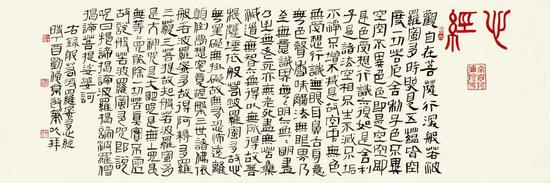 心經
觀自在菩薩行深般若波
羅蜜多時照見五蘊皆空
度一切苦厄舍利子色不異
空空不異色色即是空空即
是色受想行識亦復如是舍利
子是諸法空相不生不滅不垢
不淨不增不減是故空中無色
無受想行識無眼耳鼻舌身意
無色聲香味觸法無眼界乃
至無意識界無無明亦無無明盡
乃至無老死亦無老死盡無苦集
滅道無智亦無得以無所得故菩
提薩埵依般若波羅蜜多故心
無罣礙無罣礙故無有恐怖遠離
顛倒夢想究竟涅槃三世諸佛依
般若波羅蜜多故得阿耨多羅
三藐三菩提故知般若波羅蜜多
是大神咒是大明咒是無上咒是
無等等咒能除一切苦真實不虛
故說般若波羅蜜多咒即說
咒曰揭諦揭諦波羅揭諦波羅僧
揭諦菩提薩婆訶
右錄般若波羅蜜多心經